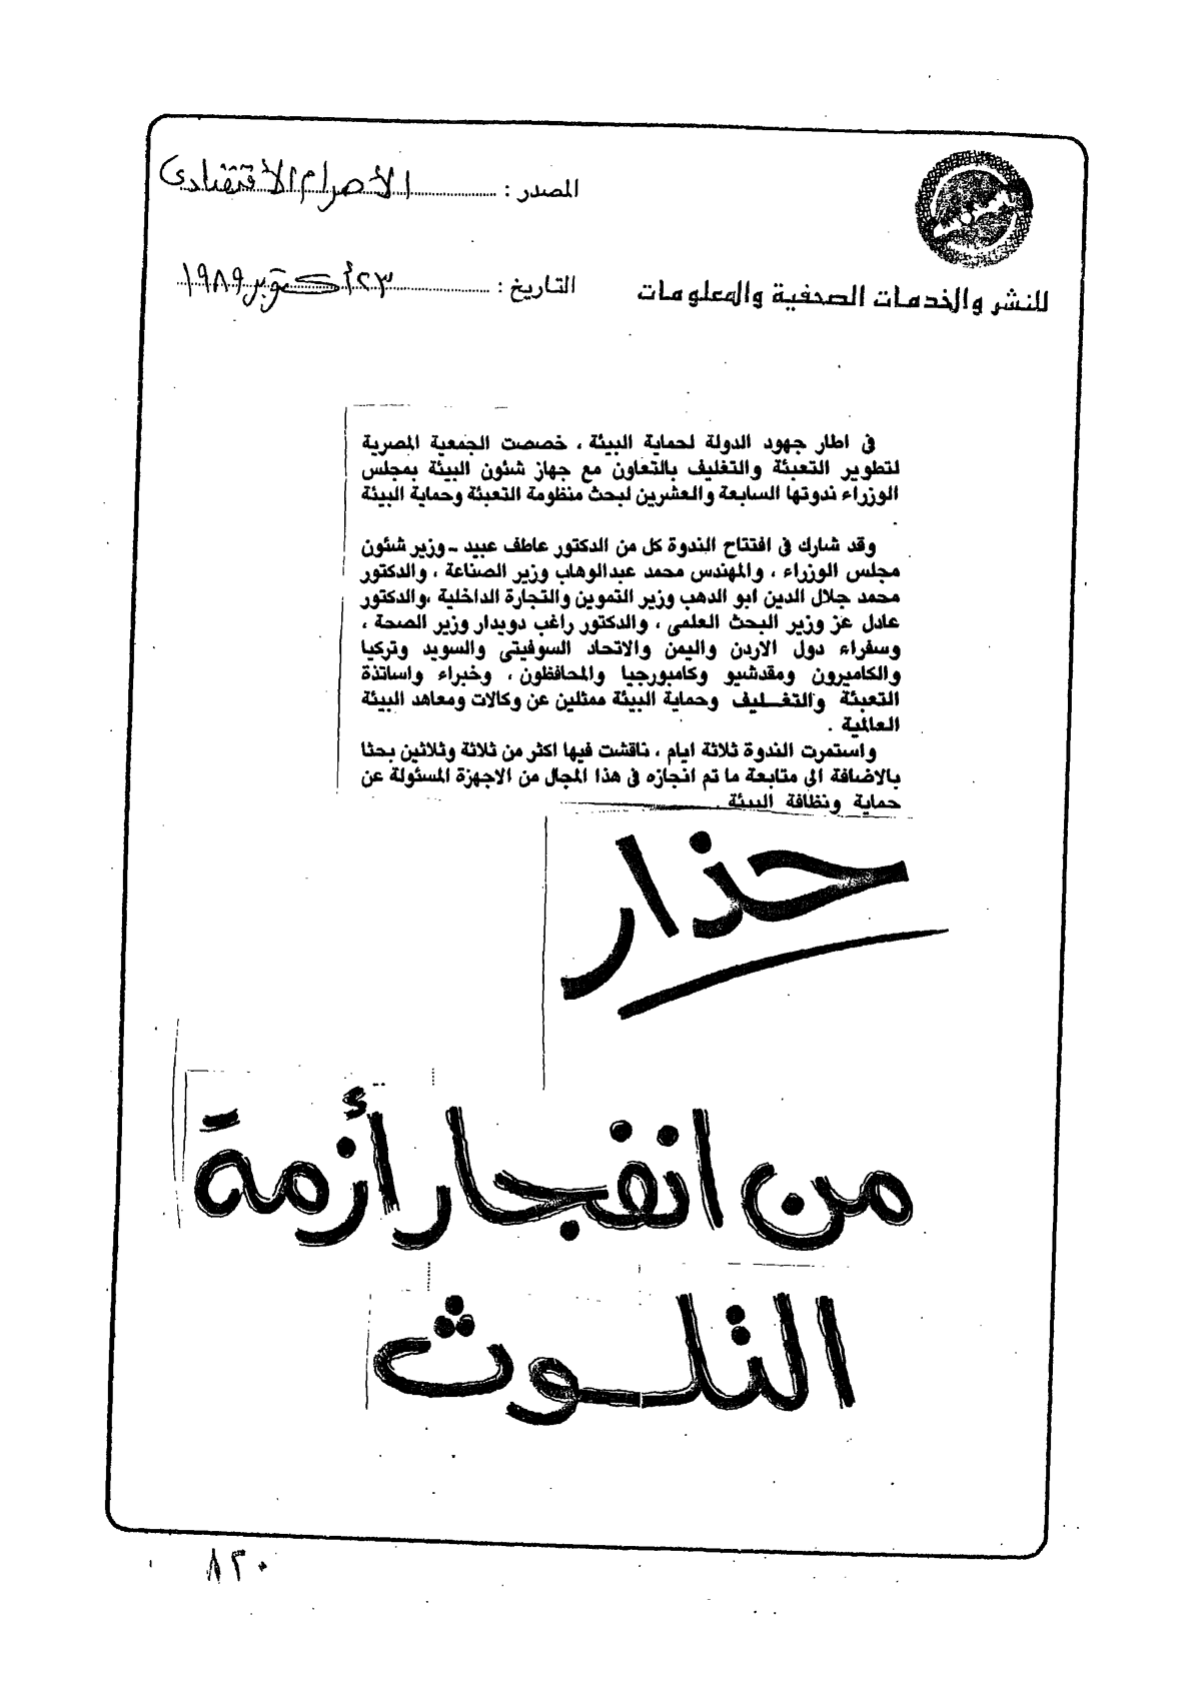 المصدر : الأهرام الاقتصادى
للنشر والخدمات الصحفية والمعلومات
التاريخ : ٢٣ أكتوبر ١٩٨٩
فى اطار جهود الدولة لحماية البيئة ، خصصت الجمعية المصرية
لتطوير التعبئة والتغليف بالتعاون مع جهاز شئون البيئة بمجلس
الوزراء ندوتها السابعة والعشرين لبحث منظومة التعبئة وحماية البيئة
.
وقد شارك فى افتتاح الندوة كل من الدكتور عاطف عبيد - وزير شئون
مجلس الوزراء ، والمهندس محمد عبدالوهاب وزير الصناعة ، والدكتور
محمد جلال الدين ابو الدهب وزير التموين والتجارة الداخلية ،والدكتور
عادل عز وزير البحث العلمى ، والدكتور راغب دويدار وزير الصحة ،
وسفراء دول الاردن واليمن والاتحاد السوفيتى والسويد وتركيا
والكاميرون ومقدشيو وكامبورجيا والمحافظون ، وخبراء واساتذة
التعبئة والتغـليف وحماية البيئة ممثلين عن وكالات ومعاهد البيئة
العالمية .
واستمرت الندوة ثلاثة ايام ، ناقشت فيها اكثر من ثلاثة وثلاثين بحثا
بالاضافة الى متابعة ما تم انجازه فى هذا المجال من الاجهزة المسئولة عن
حماية ونظافة البيئة .
حذار
من انفجار أزمة
التلـوث
٨٢٠